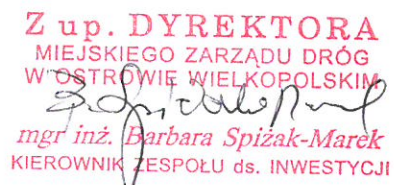 Z up. DYREKTORA
MIEJSKIEGO ZARZĄDU DRÓG
W OSTROWIE WIELKOPOLSKIM
mgr inż. Barbara Spiżak-Marek
KIEROWNIK ZESPOŁU ds. INWESTYCJI